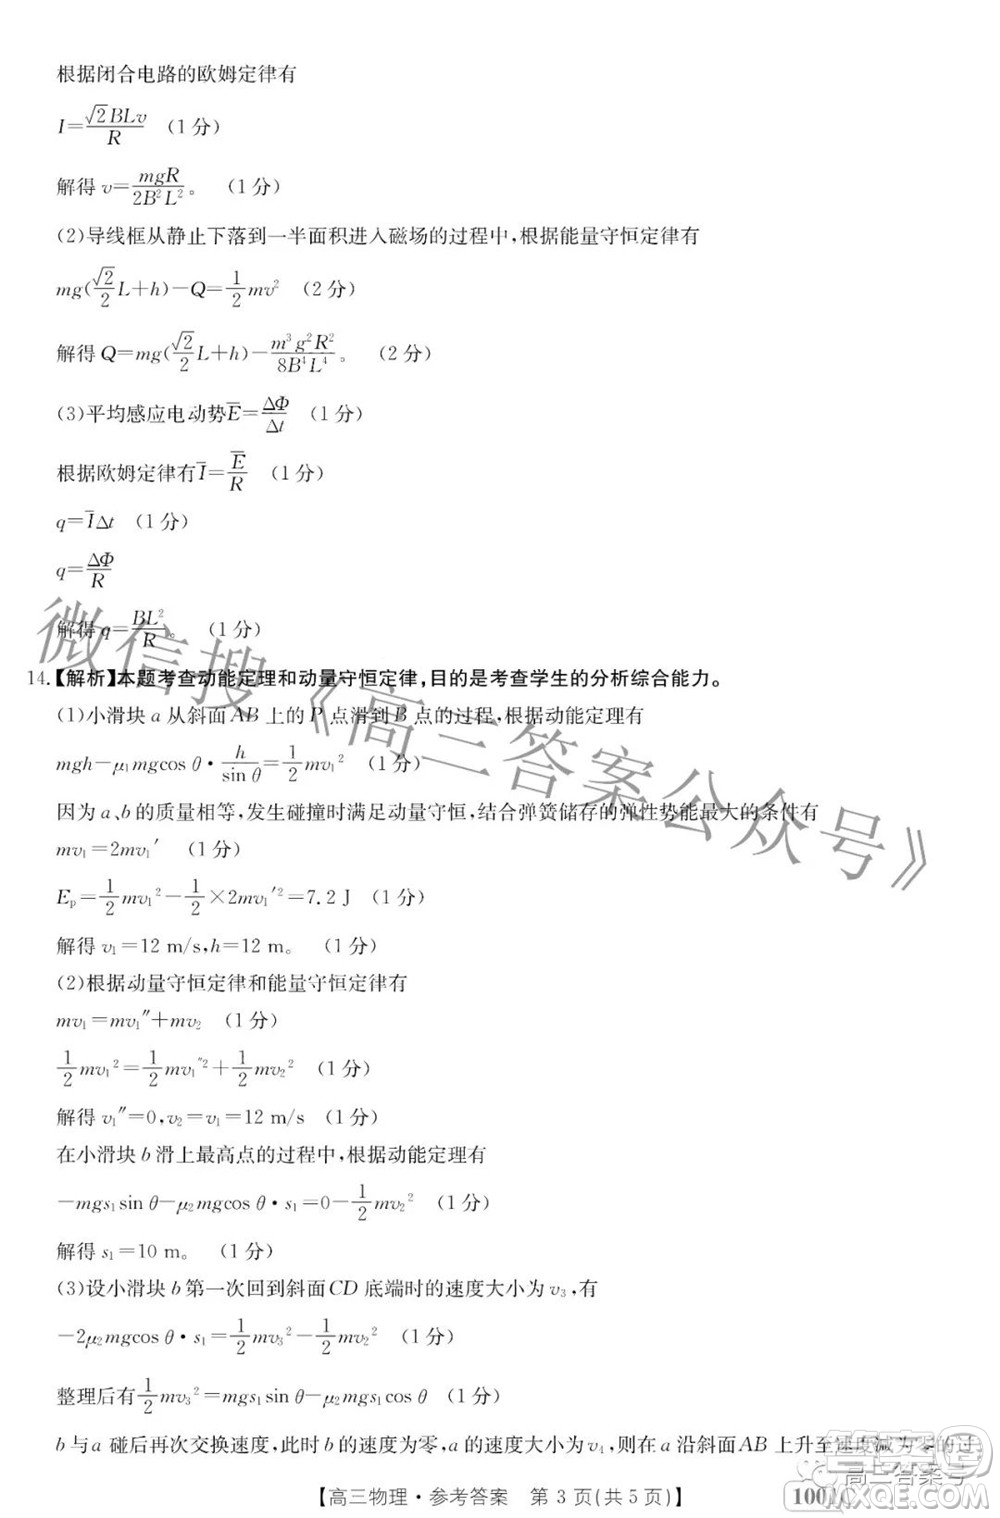 根据闭合电路的欧姆定律有
I=√2BLv/R (1分)
解得 v=mgR/2B²L²。 (1分)
(2)导线框从静止下落到一半面积进入磁场的过程中,根据能量守恒定律有
mg(√2/2 L+h)-Q=1/2 mv² (2分)
解得 Q=mg(√2/2 L+h)-m³g²R²/8B⁴L⁴。 (2分)
(3)平均感应电动势E̅=ΔΦ/Δt (1分)
根据欧姆定律有I̅=E̅/R (1分)
q=I̅Δt (1分)
q=ΔΦ/R
解得 q=BL²/R。 (1分)
14.【解析】本题考查动能定理和动量守恒定律,目的是考查学生的分析综合能力。
(1)小滑块 a 从斜面 AB 上的 P 点滑到 B 点的过程,根据动能定理有
mgh-μ₁mgcos θ·h/sin θ=1/2 mv₁² (1分)
因为 a、b 的质量相等,发生碰撞时满足动量守恒,结合弹簧储存的弹性势能最大的条件有
mv₁=2mv₁′ (1分)
Eₚ=1/2 mv₁²-1/2×2mv₁′²=7.2 J (1分)
解得 v₁=12 m/s,h=12 m。 (1分)
(2)根据动量守恒定律和能量守恒定律有
mv₁=mv₁″+mv₂ (1分)
1/2 mv₁²=1/2 mv₁″²+1/2 mv₂² (1分)
解得 v₁″=0,v₂=v₁=12 m/s (1分)
在小滑块 b 滑上最高点的过程中,根据动能定理有
-mgs₁sin θ-μ₂mgcos θ·s₁=0-1/2 mv₂² (1分)
解得 s₁=10 m。 (1分)
(3)设小滑块 b 第一次回到斜面 CD 底端时的速度大小为 v₃,有
-2μ₂mgcos θ·s₁=1/2 mv₃²-1/2 mv₂² (1分)
整理后有1/2 mv₃²=mgs₁sin θ-μ₂mgs₁cos θ (1分)
b 与 a 碰后再次交换速度,此时 b 的速度为零,a 的速度大小为 v₄,则在 a 沿斜面 AB 上升至速度减为零的过
【高三物理·参考答案 第 3 页(共 5 页)】 1001C
微信搜《高三答案公众号》
高三答案号